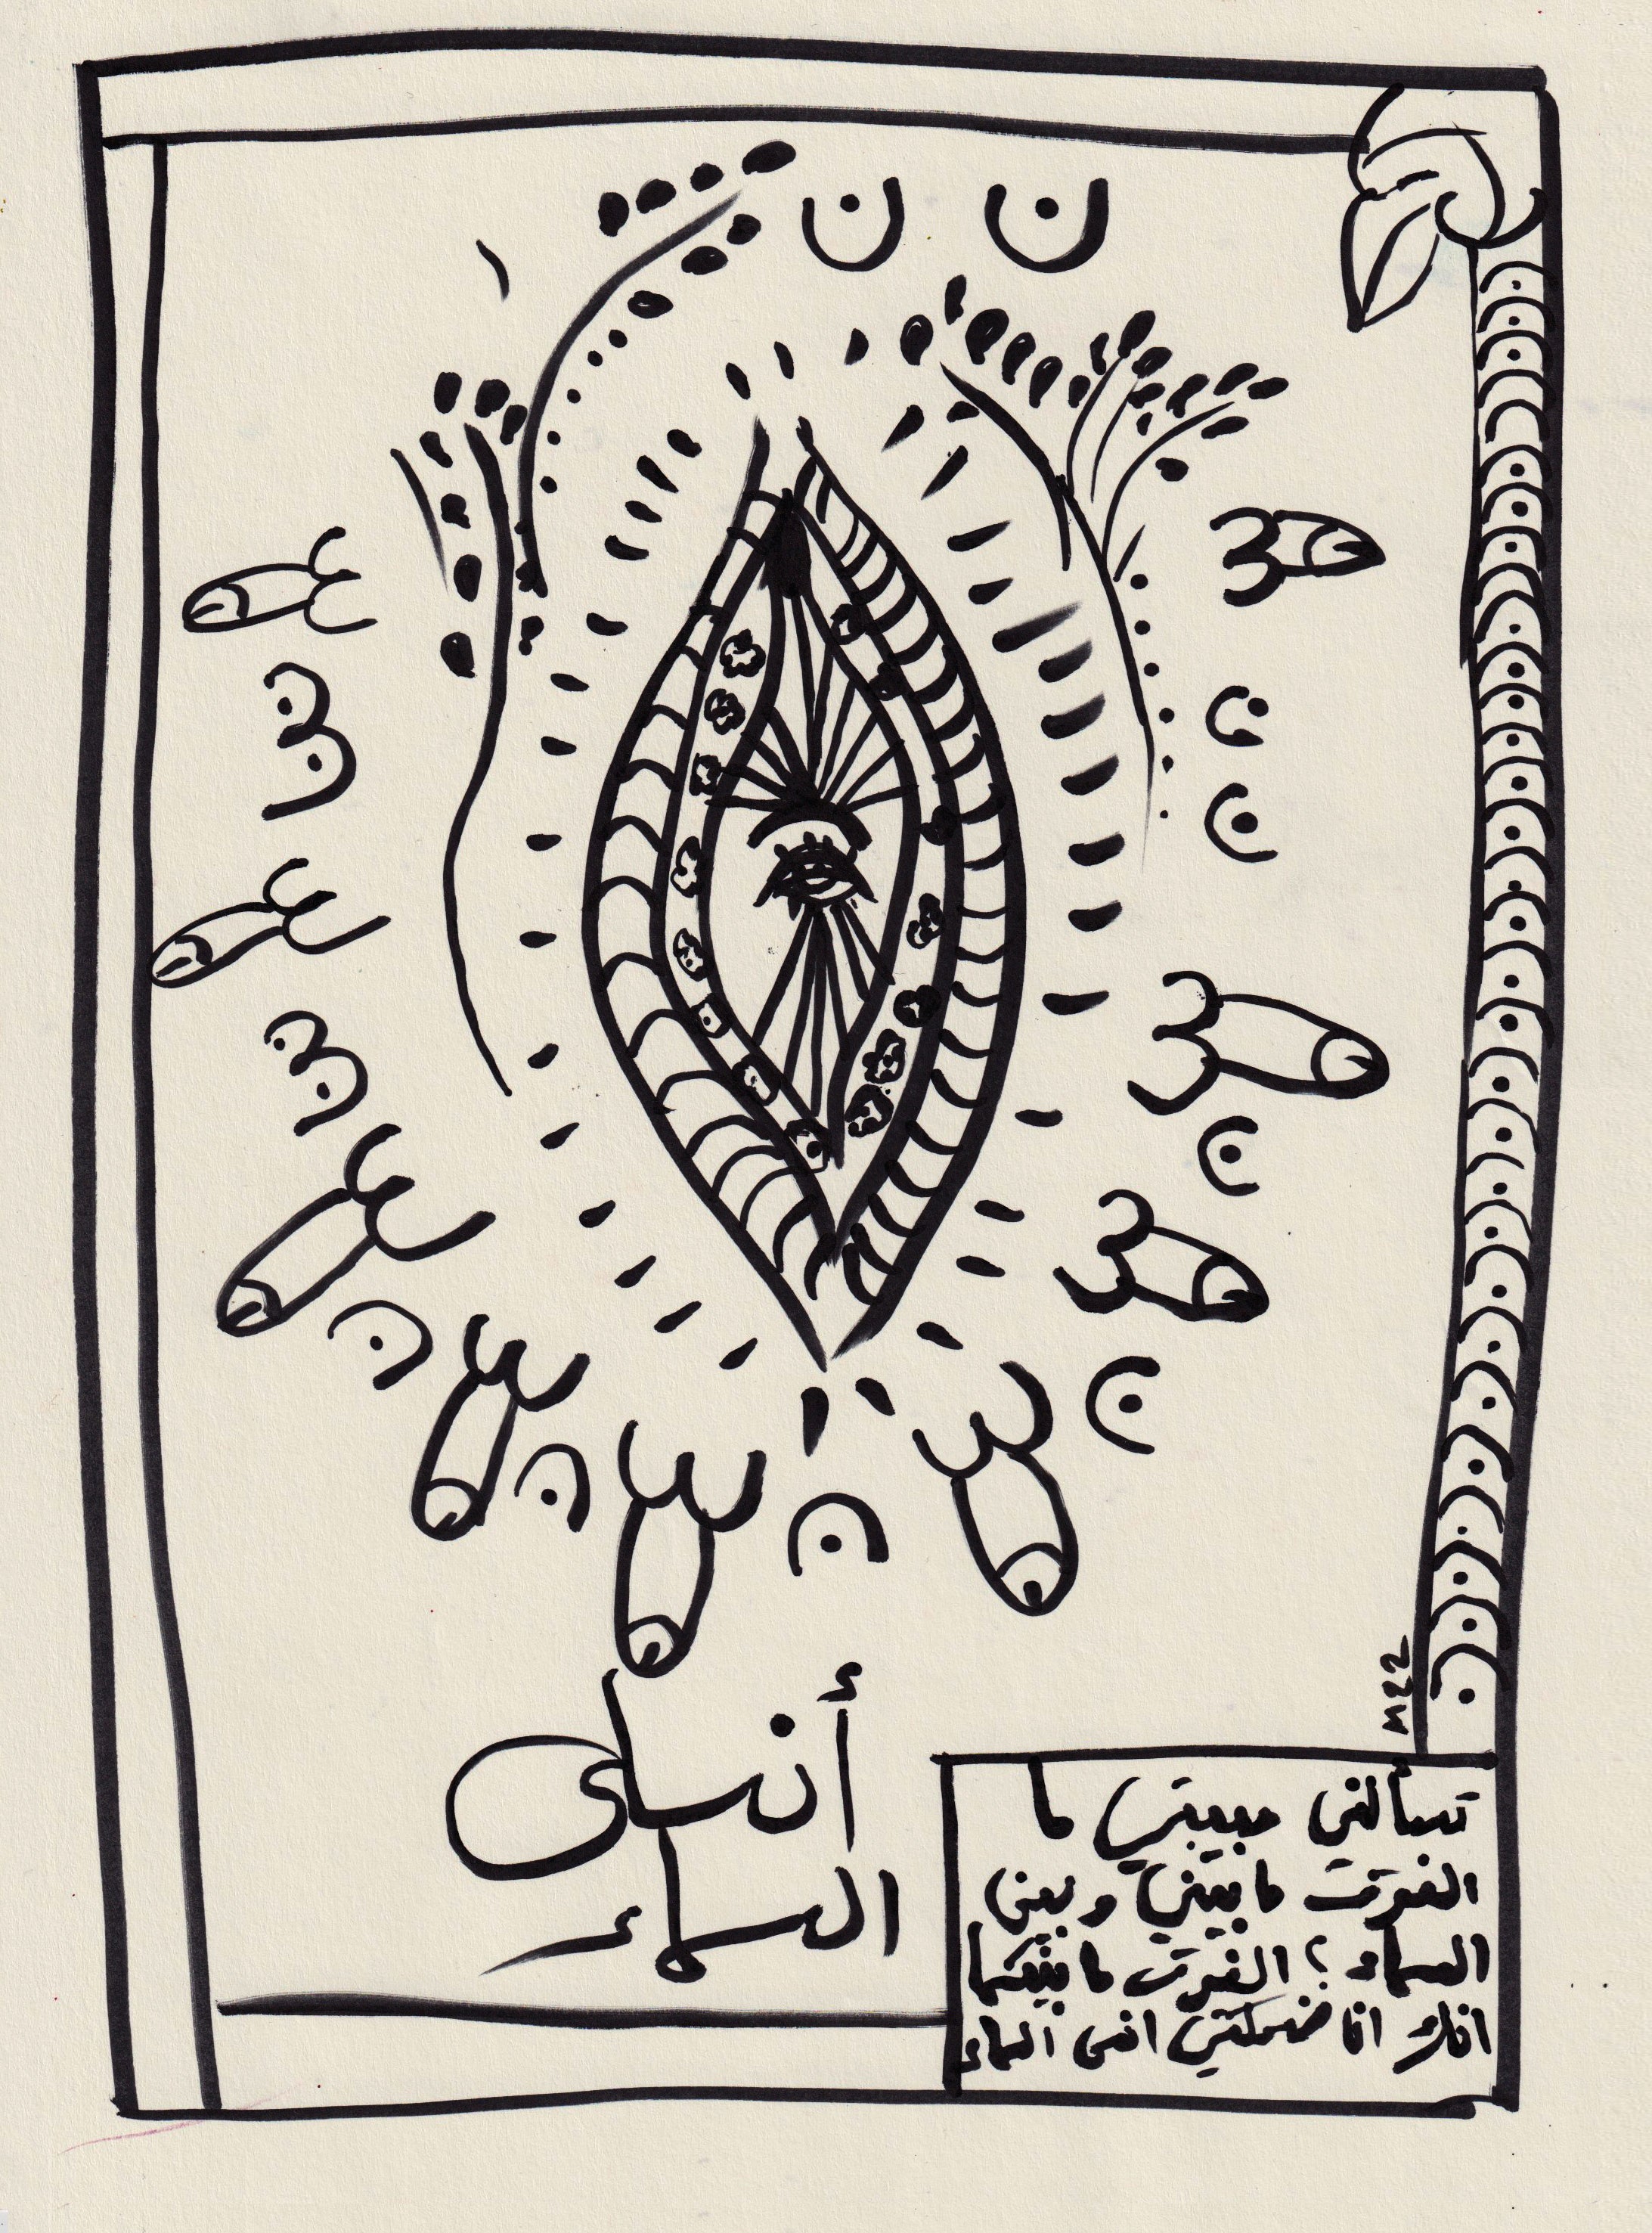 ن ن
أنسى
السماء
تسألني حبيبتي ما
الفرق ما بيني و بين
السماء ؟ الفرق ما بينكما
انك ان ضحكتي انسى السماء
M22